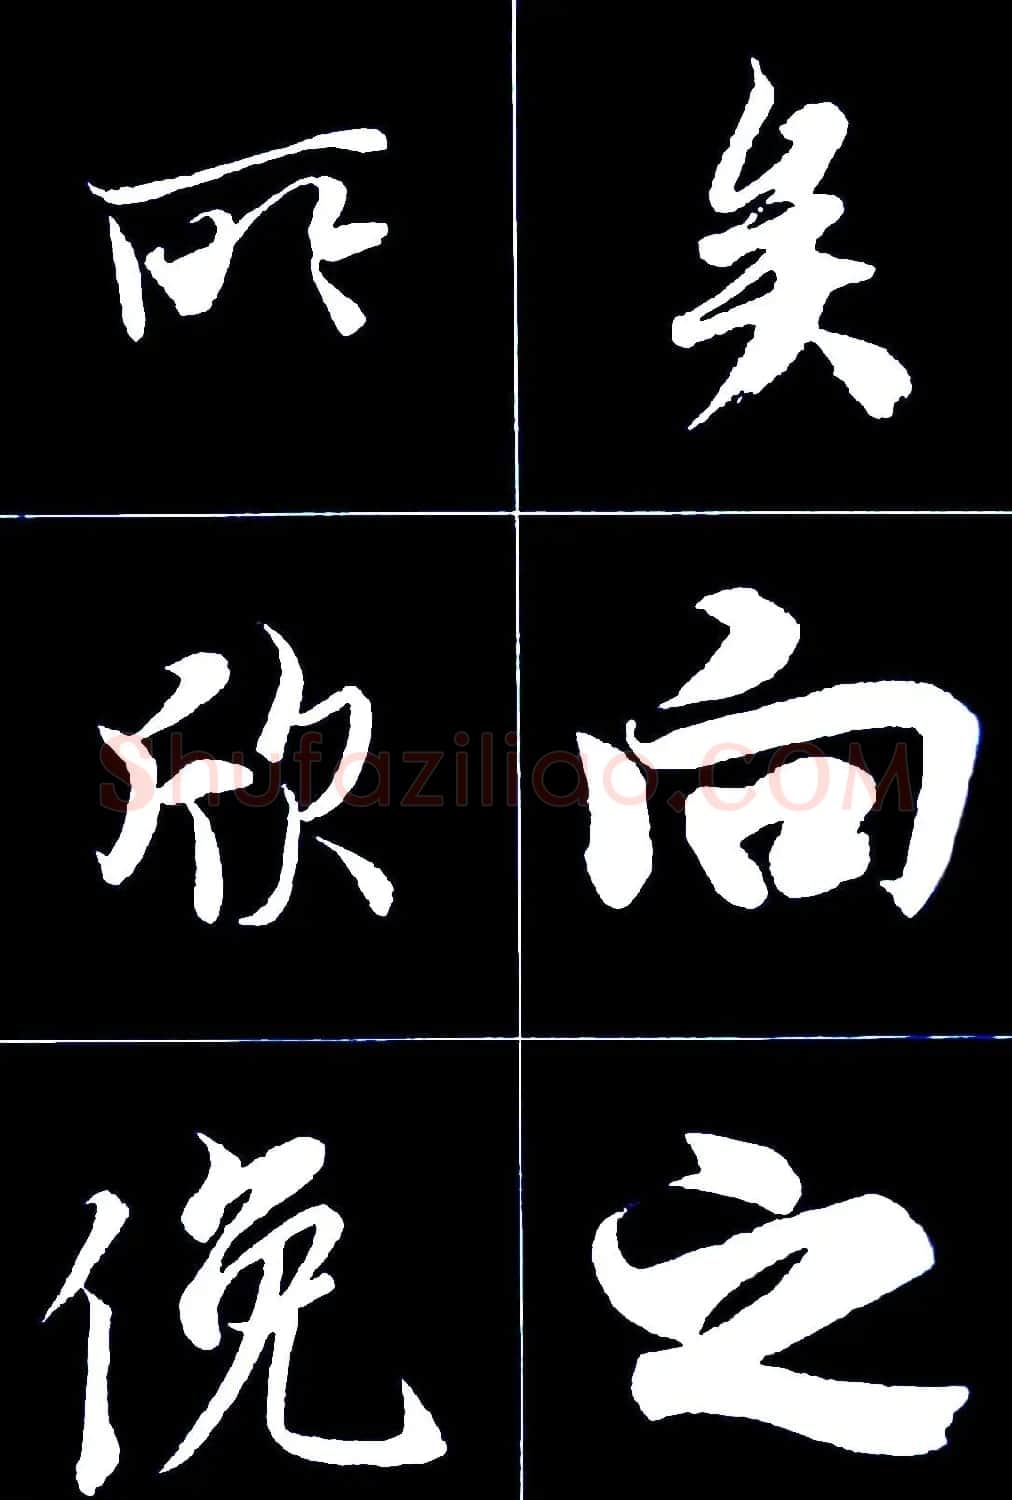 矣向之
所欣俛
Shufaziliao.COM